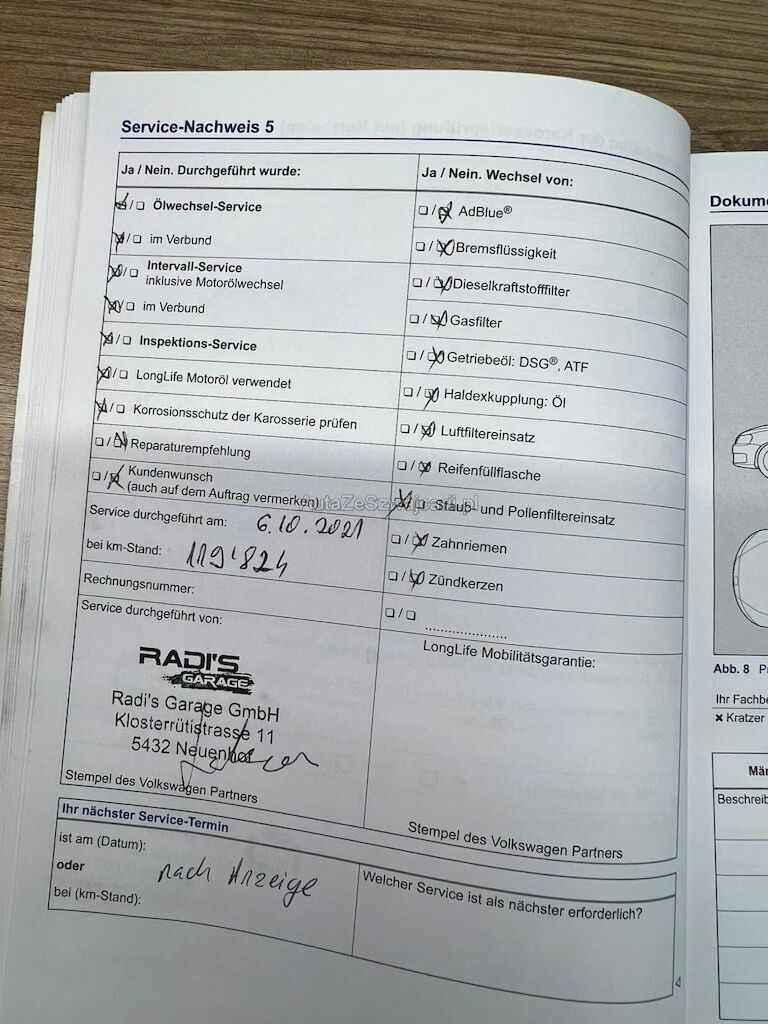 Service-Nachweis 5
Ja / Nein. Durchgeführt wurde:
Ölwechsel-Service
im Verbund
Intervall-Service
inklusive Motorölwechsel
im Verbund
Inspektions-Service
LongLife Motoröl verwendet
Korrosionsschutz der Karosserie prüfen
Reparaturempfehlung
Kundenwunsch
(auch auf dem Auftrag vermerken)
Service durchgeführt am: 6.10.2021
bei km-Stand: 119'824
Rechnungsnummer:
Service durchgeführt von:
RADI'S
GARAGE
Radi's Garage GmbH
Klosterrütistrasse 11
5432 Neuenhof
Stempel des Volkswagen Partners
Ja / Nein. Wechsel von:
AdBlue®
Bremsflüssigkeit
Dieselkraftstofffilter
Gasfilter
Getriebeöl: DSG®, ATF
Haldexkupplung: Öl
Luftfiltereinsatz
Reifenfüllflasche
Staub- und Pollenfiltereinsatz
Zahnriemen
Zündkerzen
....................
LongLife Mobilitätsgarantie:
Stempel des Volkswagen Partners
Ihr nächster Service-Termin
ist am (Datum):
oder
nach Anzeige
bei (km-Stand):
Welcher Service ist als nächster erforderlich?
AutaZeSzwajcarii.pl
Dokume
Abb. 8 P
Ihr Fachbe
Kratzer
Män
Beschreib